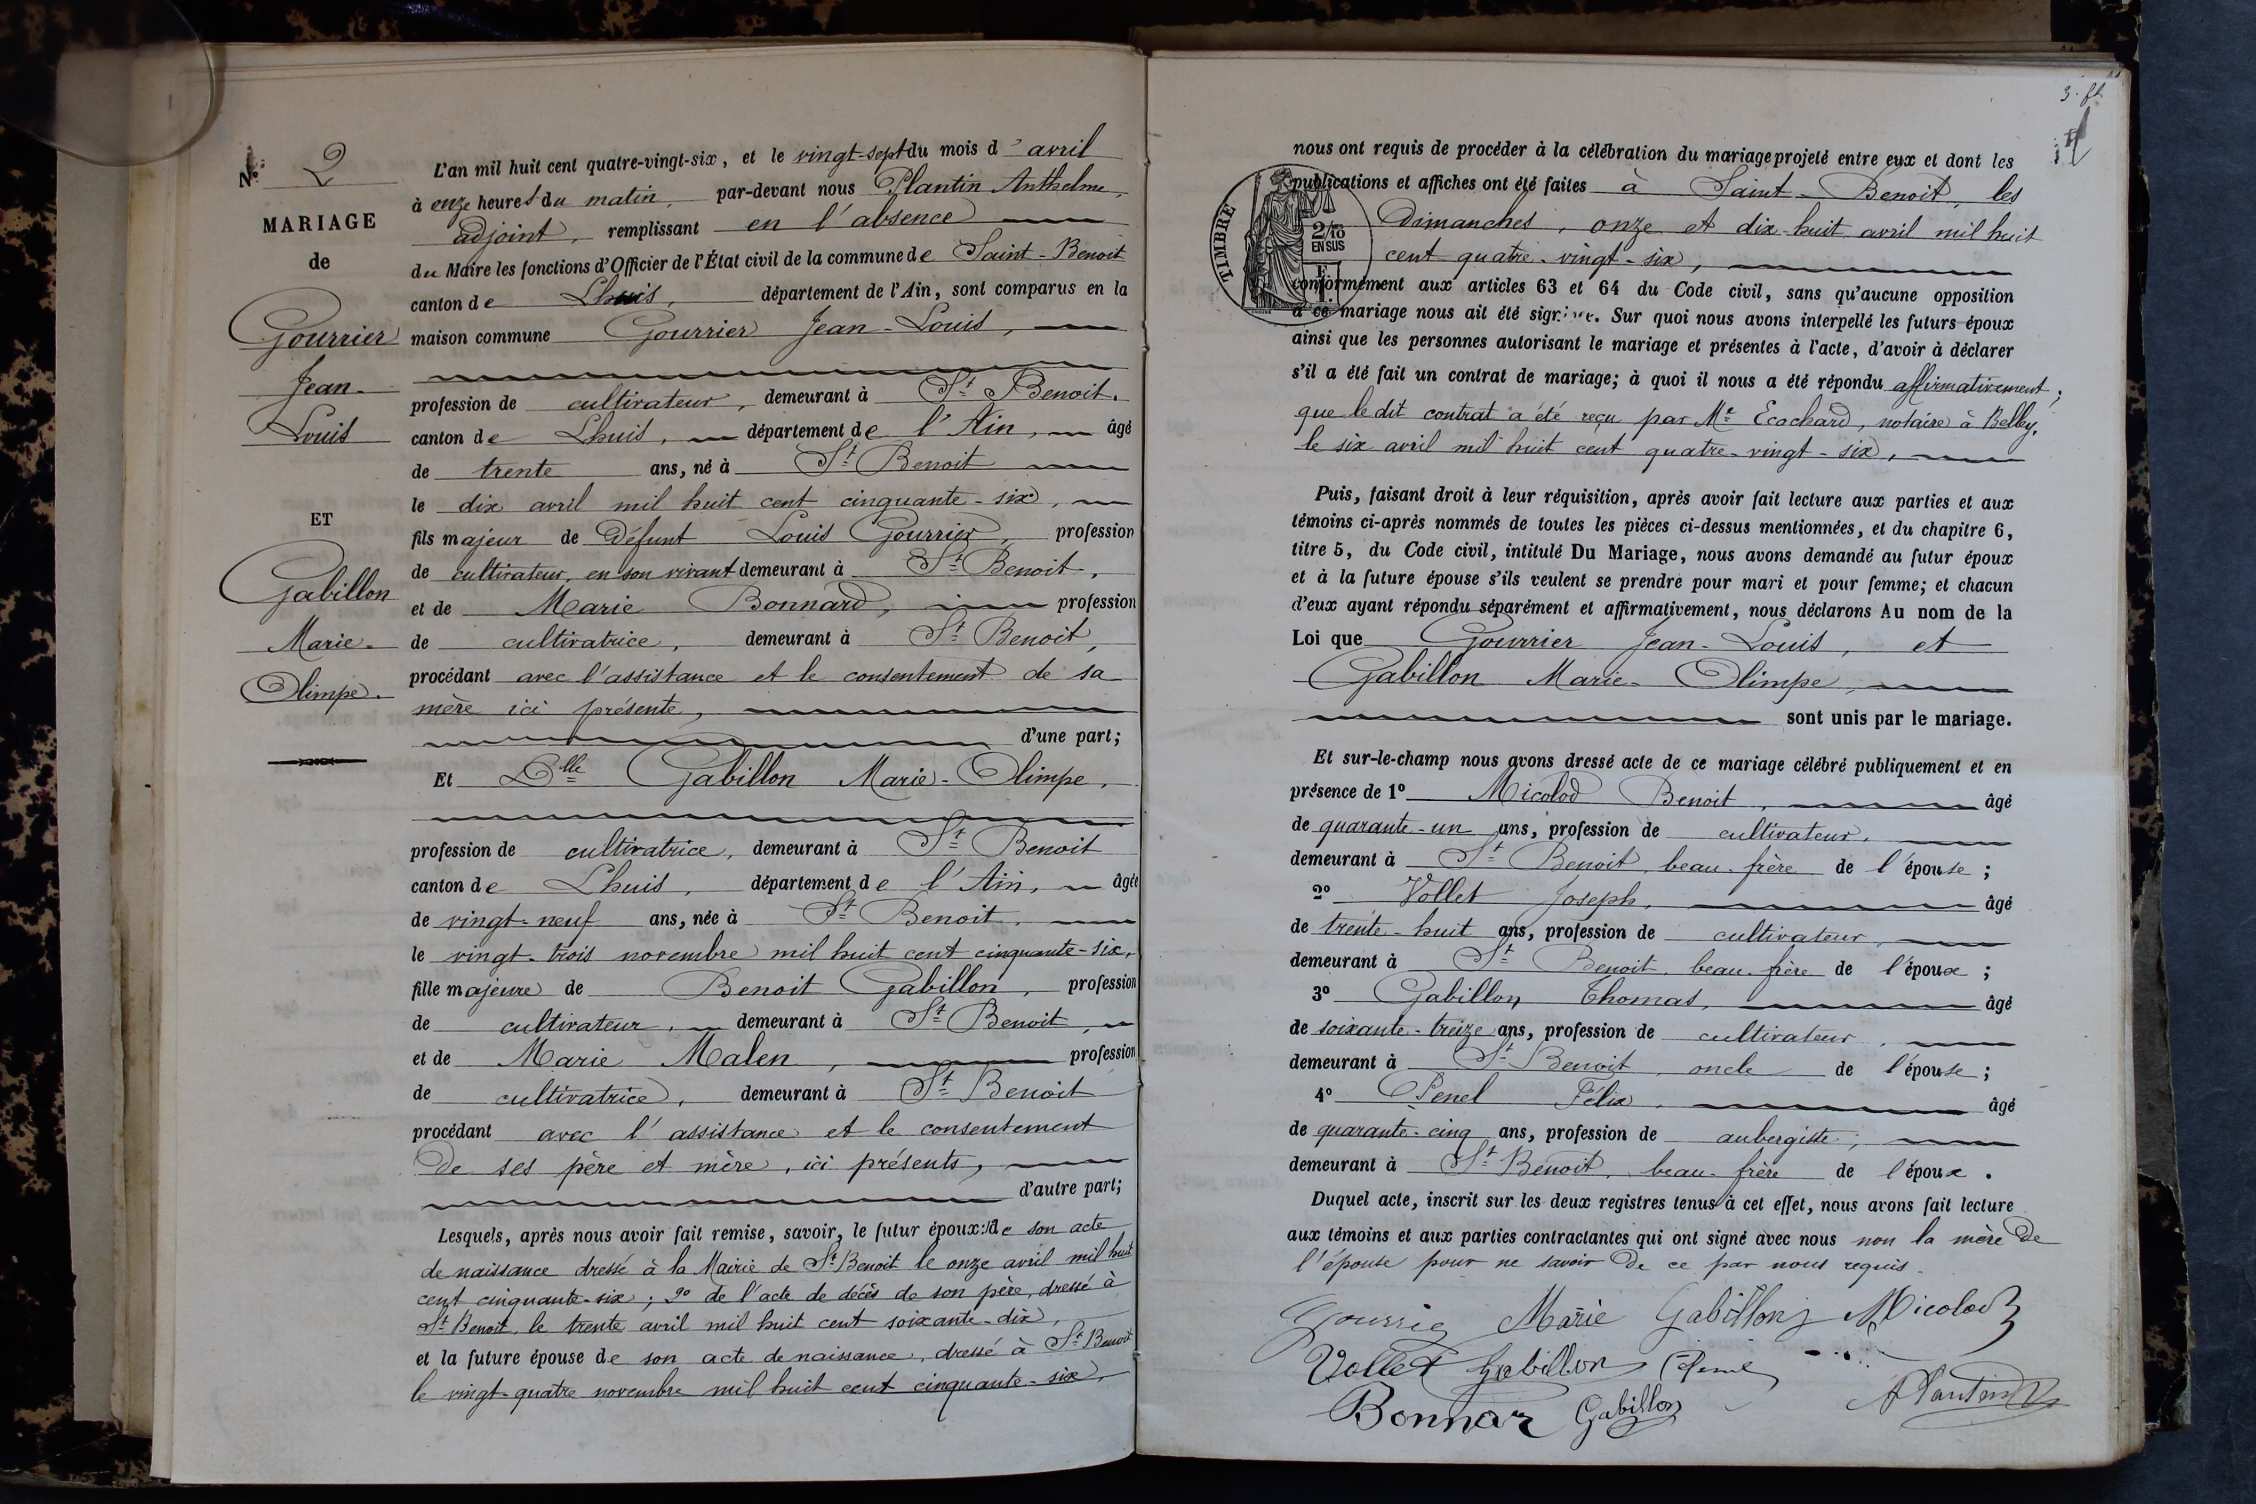 N° 2
MARIAGE
de
Gourrier
Jean-
Louis
ET
Gabillon
Marie-
Olimpe.
L'an mil huit cent quatre-vingt-six, et le vingt-sept du mois d'avril
à onze heures du matin, par-devant nous Plantin Anthelme,
adjoint, remplissant en l'absence
du Maire les fonctions d'Officier de l'État civil de la commune de Saint-Benoit
canton de Lhuis, département de l'Ain, sont comparus en la
maison commune Gourrier Jean-Louis,
profession de cultivateur, demeurant à St Benoit.
canton de Lhuis, département de l'Ain, âgé
de trente ans, né à St Benoit
le dix avril mil huit cent cinquante-six,
fils majeur de Défunt Louis Gourrier, profession
de cultivateur, en son vivant demeurant à St Benoit,
et de Marie Bonnard, profession
de cultivatrice, demeurant à St Benoit,
procédant avec l'assistance et le consentement de sa
mère ici présente,
d'une part;
Et Dlle Gabillon Marie-Olimpe,
profession de cultivatrice, demeurant à St Benoit
canton de Lhuis, département de l'Ain, âgée
de vingt-neuf ans, née à St Benoit,
le vingt-trois novembre mil huit cent cinquante-six,
fille majeure de Benoit Gabillon, profession
de cultivateur, demeurant à St Benoit,
et de Marie Malen, profession
de cultivatrice, demeurant à St Benoit
procédant avec l'assistance et le consentement
de ses père et mère, ici présents,
d'autre part;
Lesquels, après nous avoir fait remise, savoir, le futur époux: 1° de son acte
de naissance dressé à la Mairie de St Benoit le onze avril mil huit
cent cinquante-six; 2° de l'acte de décès de son père, dressé à
St Benoit, le trente avril mil huit cent soixante-dix,
et la future épouse de son acte de naissance, dressé à St Benoit
le vingt-quatre novembre mil huit cent cinquante-six,
3. ft.
nous ont requis de procéder à la célébration du mariage projeté entre eux et dont les
publications et affiches ont été faites à Saint-Benoit, les
Dimanches, onze et dix-huit avril mil huit
cent quatre-vingt-six,
TIMBRE
2/10
EN SUS
conformément aux articles 63 et 64 du Code civil, sans qu'aucune opposition
à ce mariage nous ait été signifiée. Sur quoi nous avons interpellé les futurs époux
ainsi que les personnes autorisant le mariage et présentes à l'acte, d'avoir à déclarer
s'il a été fait un contrat de mariage; à quoi il nous a été répondu affirmativement;
que le dit contrat a été reçu par Me Ecochard, notaire à Belley,
le six avril mil huit cent quatre-vingt-six,
Puis, faisant droit à leur réquisition, après avoir fait lecture aux parties et aux
témoins ci-après nommés de toutes les pièces ci-dessus mentionnées, et du chapitre 6,
titre 5, du Code civil, intitulé Du Mariage, nous avons demandé au futur époux
et à la future épouse s'ils veulent se prendre pour mari et pour femme; et chacun
d'eux ayant répondu séparément et affirmativement, nous déclarons Au nom de la
Loi que Gourrier Jean-Louis, et
Gabillon Marie-Olimpe,
sont unis par le mariage.
Et sur-le-champ nous avons dressé acte de ce mariage célébré publiquement et en
présence de 1° Micolod Benoit, âgé
de quarante-un ans, profession de cultivateur,
demeurant à St Benoit, beau-frère de l'épouse;
2° Vollet Joseph, âgé
de trente-huit ans, profession de cultivateur,
demeurant à St Benoit, beau-frère de l'époux;
3° Gabillon Thomas, âgé
de soixante-treize ans, profession de cultivateur,
demeurant à St Benoit, oncle de l'épouse;
4° Penel Félix, âgé
de quarante-cinq ans, profession de aubergiste,
demeurant à St Benoit, beau-frère de l'époux.
Duquel acte, inscrit sur les deux registres tenus à cet effet, nous avons fait lecture
aux témoins et aux parties contractantes qui ont signé avec nous non la mère de
l'épouse pour ne savoir de ce par nous requis.
Gourrier Marie Gabillon Micolod
Vollet Gabillon Penel
Bonnar Gabillon APlantin